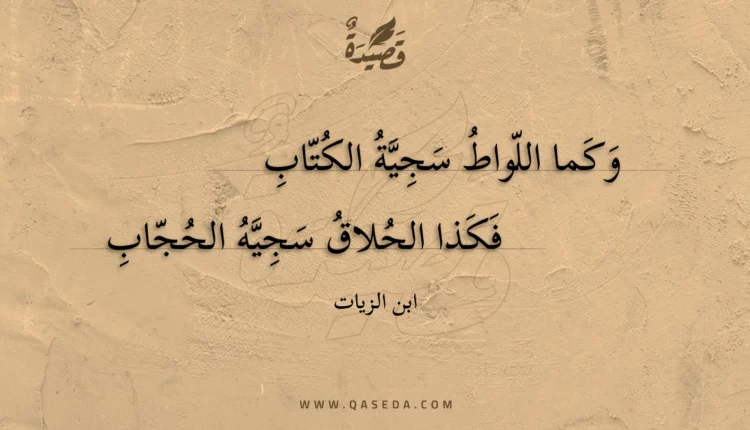 قَصِيدَةٌ
وَكَما اللّواطُ سَجِيَّةُ الكُتّابِ
فَكَذا الحُلاقُ سَجِيَّهُ الحُجّابِ
ابن الزيات
WWW.QASEDA.COM